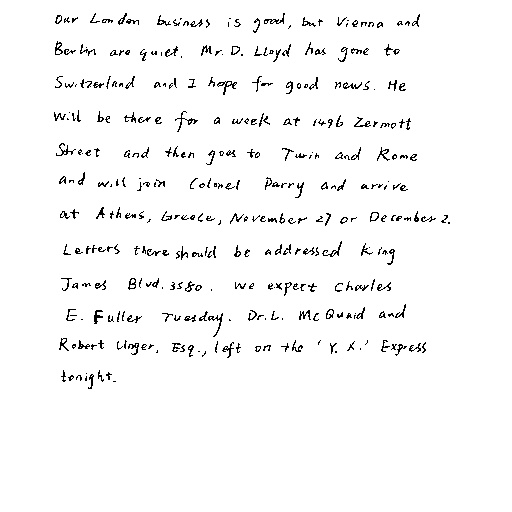 Our London business is good, but Vienna and
Berlin are quiet. Mr. D. Lloyd has gone to
Switzerland and I hope for good news. He
will be there for a week at 1496 Zermott
Street and then goes to Turin and Rome
and will join Colonel Parry and arrive
at Athens, Greece, November 27 or December 2.
Letters there should be addressed King
James Blvd. 3580. We expect Charles
E. Fuller Tuesday. Dr. L. McQuaid and
Robert Unger, Esq., left on the 'Y. X.' Express
tonight.